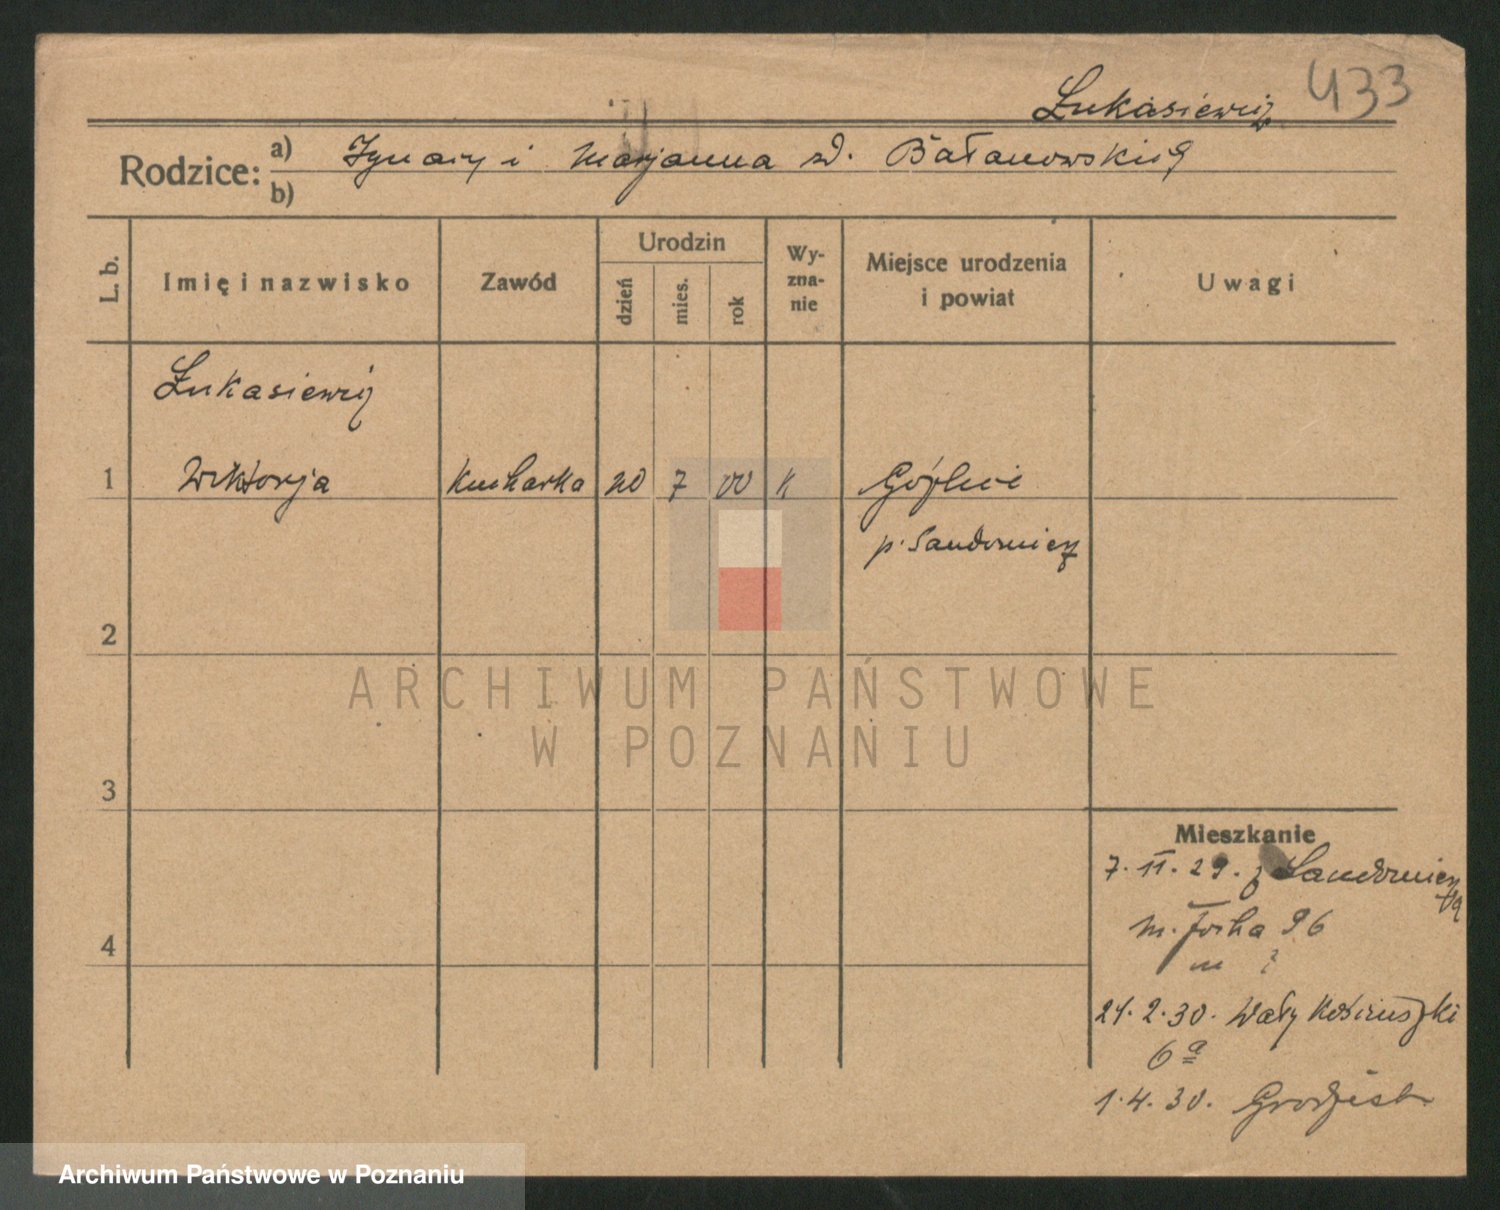 433
Łukasiewicz
Rodzice: a) Ignacy i Marjanna zd. Bałanowskich
b)
L. b. Imię i nazwisko Zawód Urodzin dzień mies. rok Wy-zna-nie Miejsce urodzenia i powiat Uwagi
Łukasiewicz
1 Wiktorja Kucharka 20 7 00 k
p. Sandomierz
2
ARCHIWUM PAŃSTWOWE
W POZNANIU
3
Mieszkanie
7. 11. 29. z Sandomierza
m. Focha 96
4
m ?
24. 2. 30. Wały Kościuszki
6a
1. 4. 30. Grodzisk
Archiwum Państwowe w Poznaniu